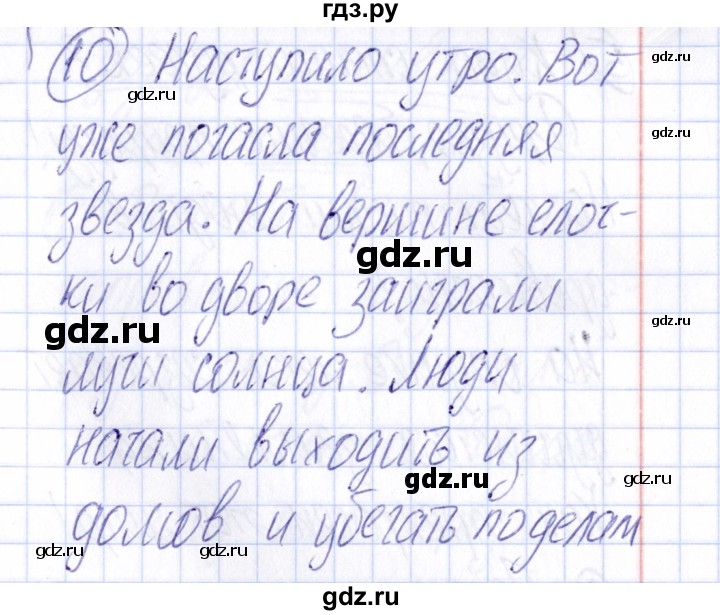 гдз.ру
10 Наступило утро. Вот
gdz.ru
gdz.ru
уже погасла последняя
gdz.ru
звезда. На вершине елоч-
gdz.ru
ки во дворе заиграли
gdz.ru
лучи солнца. Люди
начали выходить из
gdz.ru
gdz.ru
домов и убегать по делам
gdz.ru
gdz.ru
gdz.ru